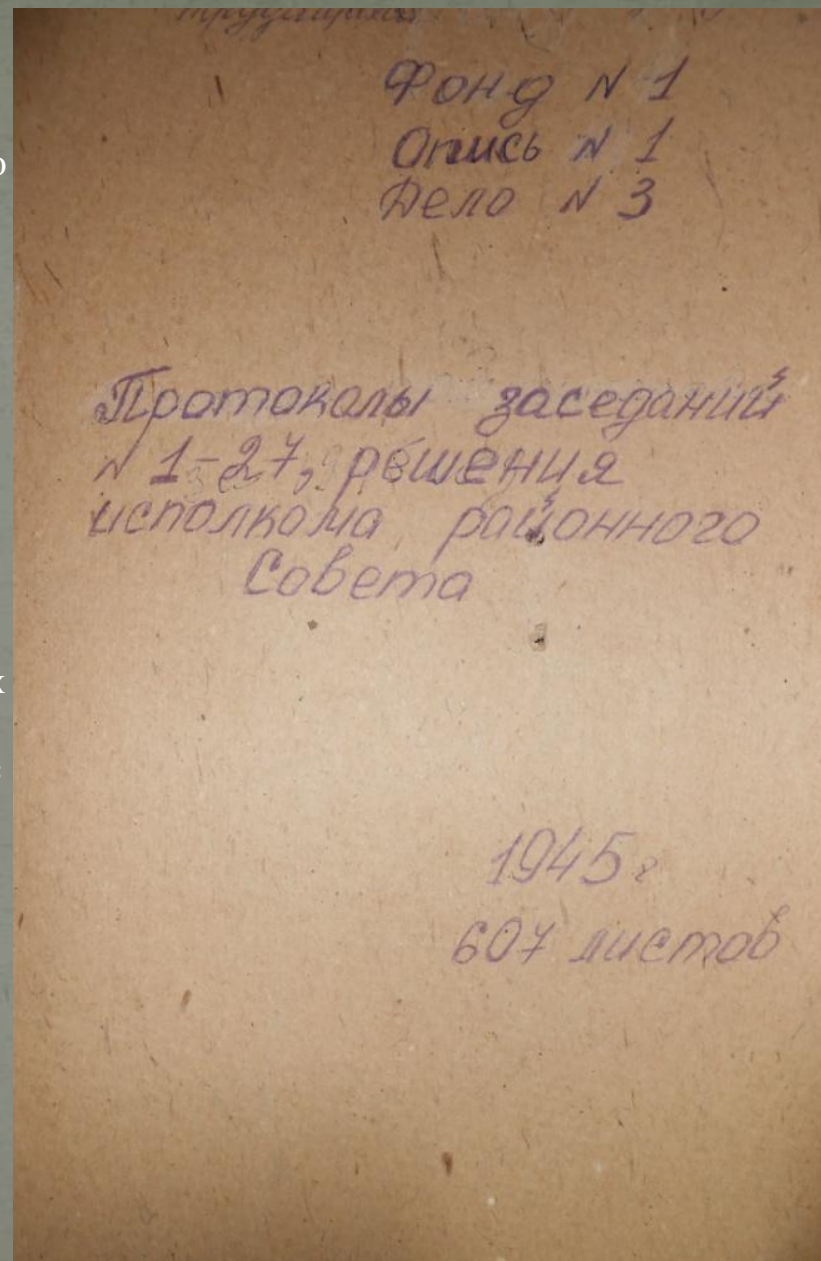 Фонд N 1
Опись N 1
Дело N 3
Протоколы заседаний
N 1-27, решения
исполкома районного
Совета
1945 г
607 листов